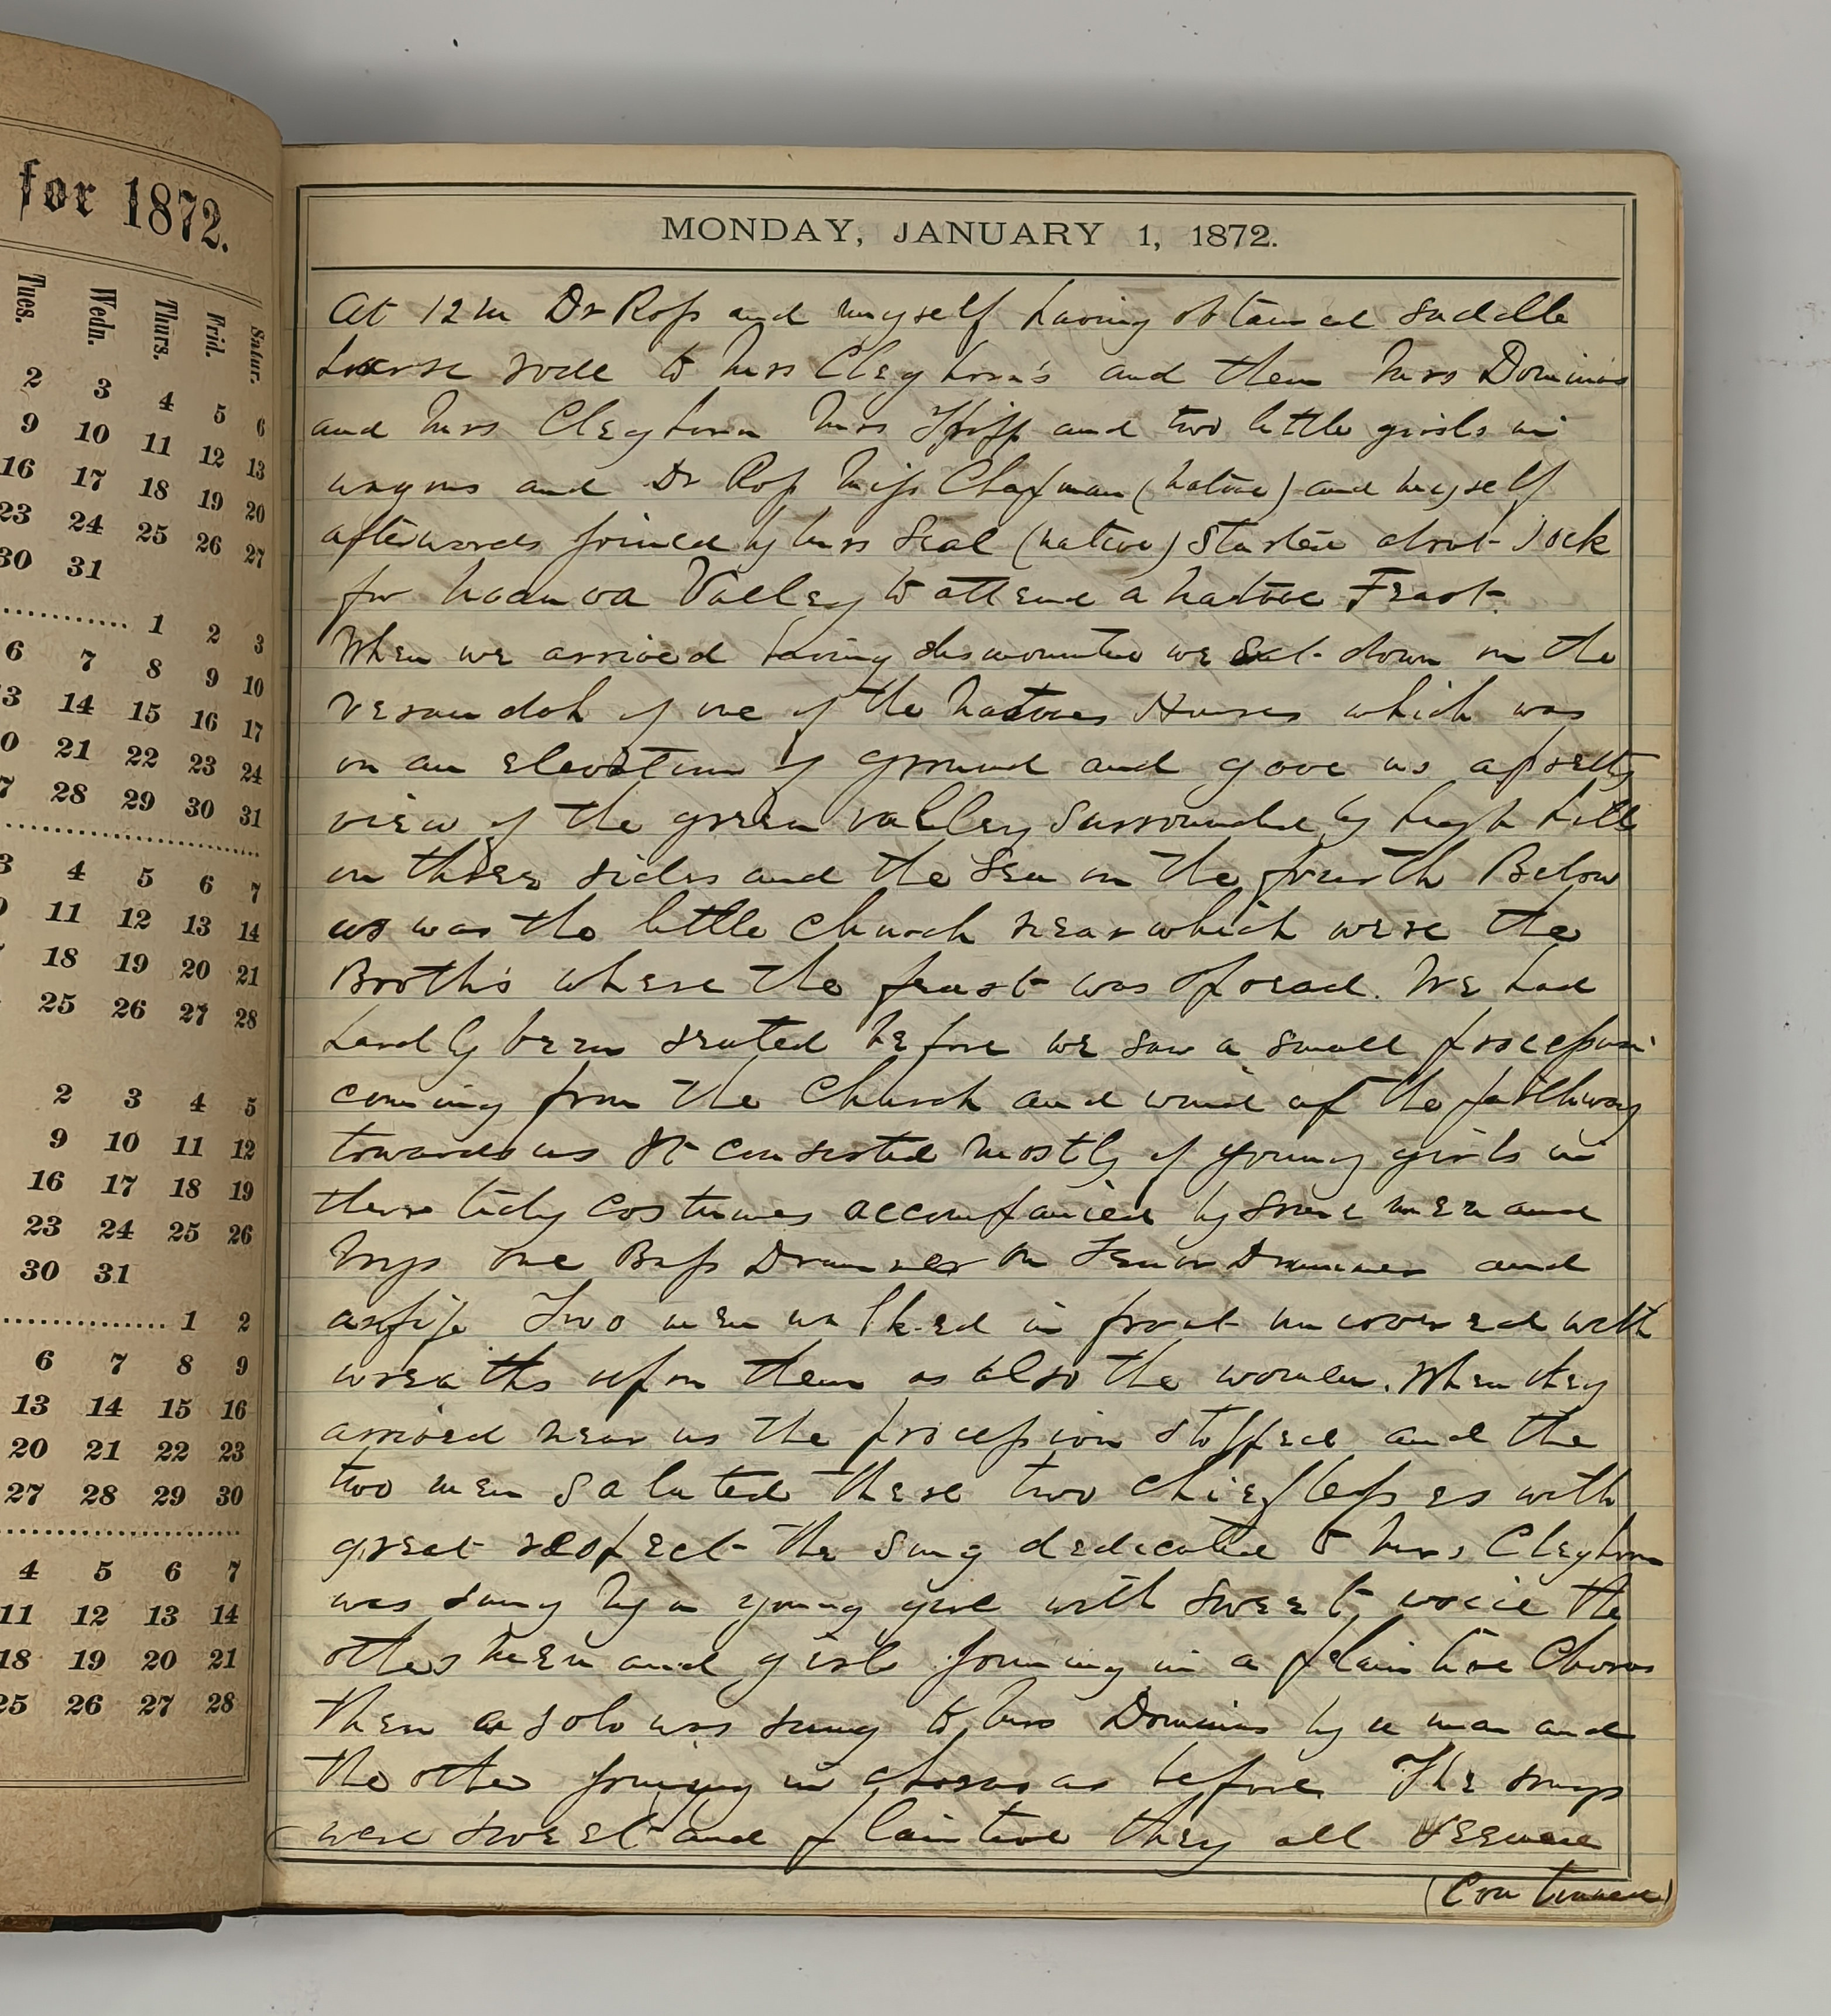 for 1872.
Tues. Wedn. Thurs. Frid. Satur.
2 3 4 5 6
9 10 11 12 13
16 17 18 19 20
23 24 25 26 27
30 31
1 2 3
6 7 8 9 10
13 14 15 16 17
20 21 22 23 24
27 28 29 30 31
3 4 5 6 7
11 12 13 14
18 19 20 21
25 26 27 28
2 3 4 5
9 10 11 12
16 17 18 19
23 24 25 26
30 31
1 2
6 7 8 9
13 14 15 16
20 21 22 23
27 28 29 30
4 5 6 7
11 12 13 14
18 19 20 21
25 26 27 28
MONDAY, JANUARY 1, 1872.
At 12 m Dr Ross and myself having obtained saddle
horse rode to Mrs Cleghorn's and then Mrs Dominis
and Mrs Cleghorn Mrs and two little girls in
wagons and Dr Ross Miss Chapman (native) and myself
afterwards joined by Mrs Seal (native) started about
for Valley to attend a native Feast.
When we arrived having dismounted we sat down on the
verandah of one of the natives Houses which was
on an elevation of ground and gave us a pretty
view of the green valley surrounded by high hills
on three sides and the sea on the fourth Below
us was the little church near which were the
Booths where the feast was spread. We had
hardly been seated before we saw a small procession
coming from the Church and wind up the pathway
towards us It consisted mostly of young girls in
there tidy costumes accompanied by some men and
boys one Bass Drummer on Tenor Drummer and
a fife Two men walked in front uncovered with
wreaths upon them as also the women. When they
arrived near us the procession stopped and the
two men saluted these two chieftesses with
great respect the song dedicated to Mrs Cleghorn
was sung by a young girl with sweet voice the
others men and girls joining in a plaintive Chorus
Then a solo was sung to Mrs Dominis by a man and
the other joining in chorus as before The songs
were sweet and plaintive they all seemed
(Continued)